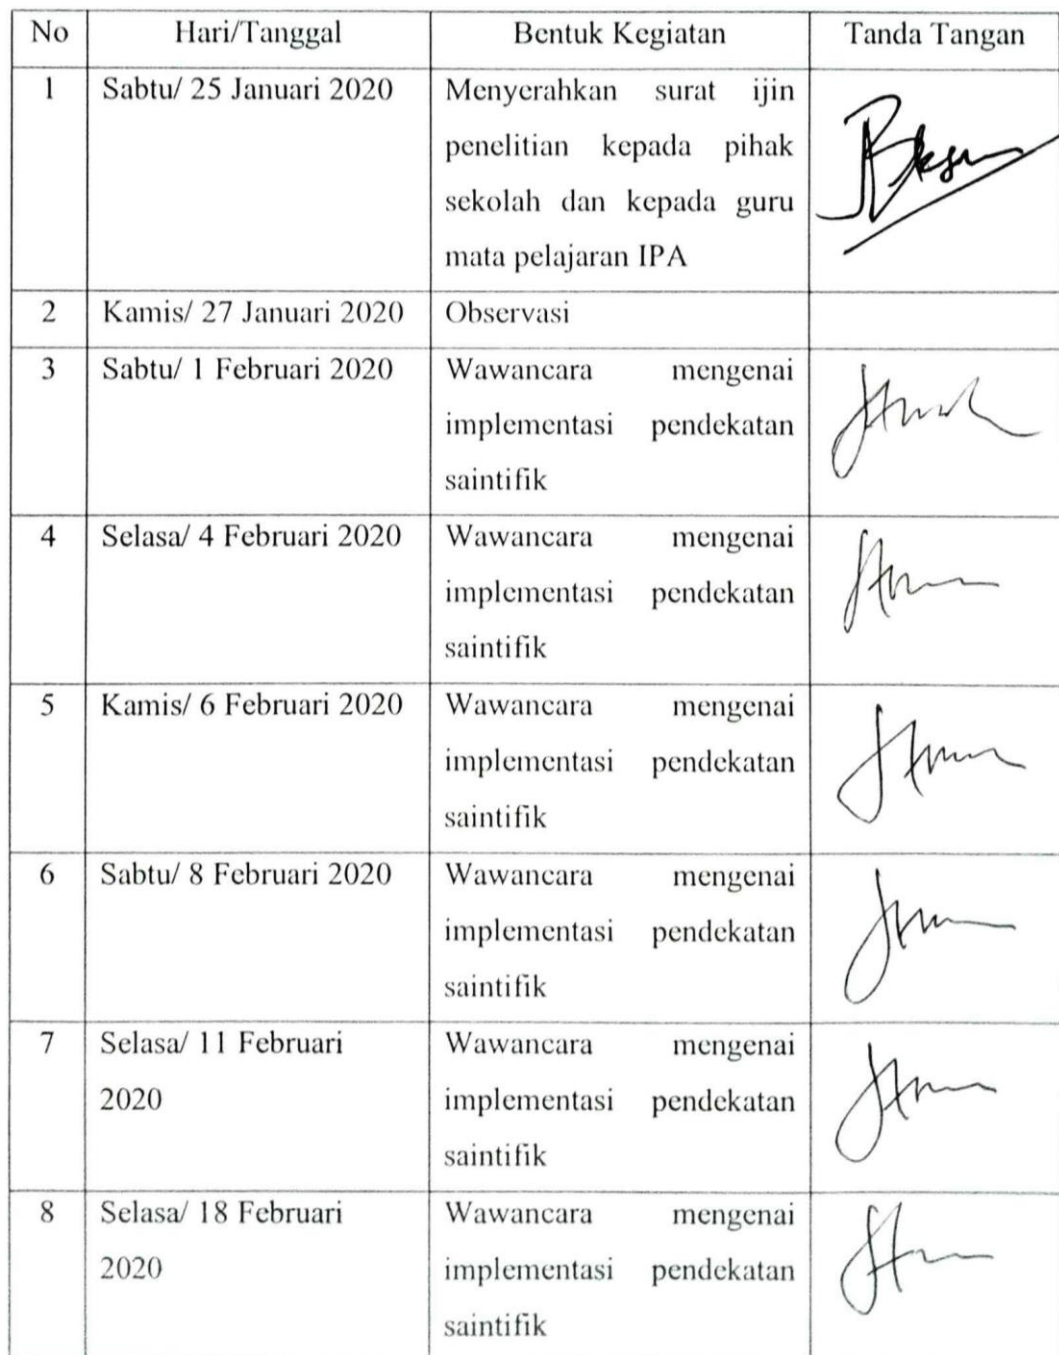 No Hari/Tanggal Bentuk Kegiatan Tanda Tangan
1 Sabtu/ 25 Januari 2020 Menyerahkan surat ijin
penelitian kepada pihak
sekolah dan kepada guru
mata pelajaran IPA
2 Kamis/ 27 Januari 2020 Observasi
3 Sabtu/ 1 Februari 2020 Wawancara mengenai
implementasi pendekatan
saintifik
4 Selasa/ 4 Februari 2020 Wawancara mengenai
implementasi pendekatan
saintifik
5 Kamis/ 6 Februari 2020 Wawancara mengenai
implementasi pendekatan
saintifik
6 Sabtu/ 8 Februari 2020 Wawancara mengenai
implementasi pendekatan
saintifik
7 Selasa/ 11 Februari Wawancara mengenai
2020 implementasi pendekatan
saintifik
8 Selasa/ 18 Februari Wawancara mengenai
2020 implementasi pendekatan
saintifik